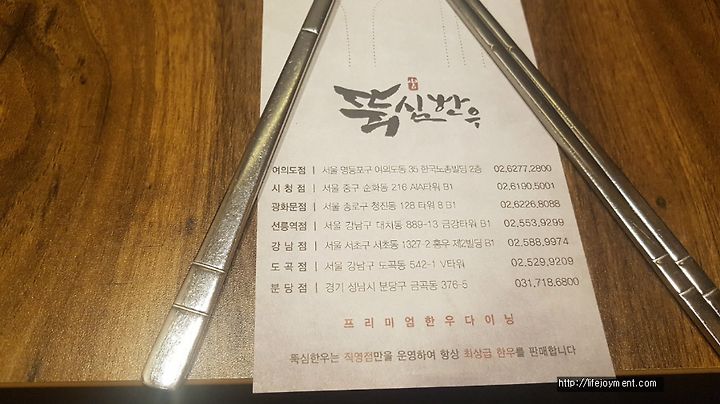 뚝심한우
여의도점 | 서울 영등포구 여의도동 35 한국노총빌딩 2층 02.6277.2800
시 청 점 | 서울 중구 순화동 216 AIA타워 B1 02.6190.5001
광화문점 | 서울 종로구 청진동 128 타워 8 B1 02.6226.8088
선릉역점 | 서울 강남구 대치동 889-13 금강타워 B1 02.553.9299
강 남 점 | 서울 서초구 서초동 1327-2 홍우 제2빌딩 B1 02.588.9974
도 곡 점 | 서울 강남구 도곡동 542-1 V타워 02.529.9209
분 당 점 | 경기 성남시 분당구 금곡동 376-5 031.718.6800
프 리 미 엄 한 우 다 이 닝
뚝심한우는 직영점만을 운영하여 항상 최상급 한우를 판매합니다
http://lifejoyment.com